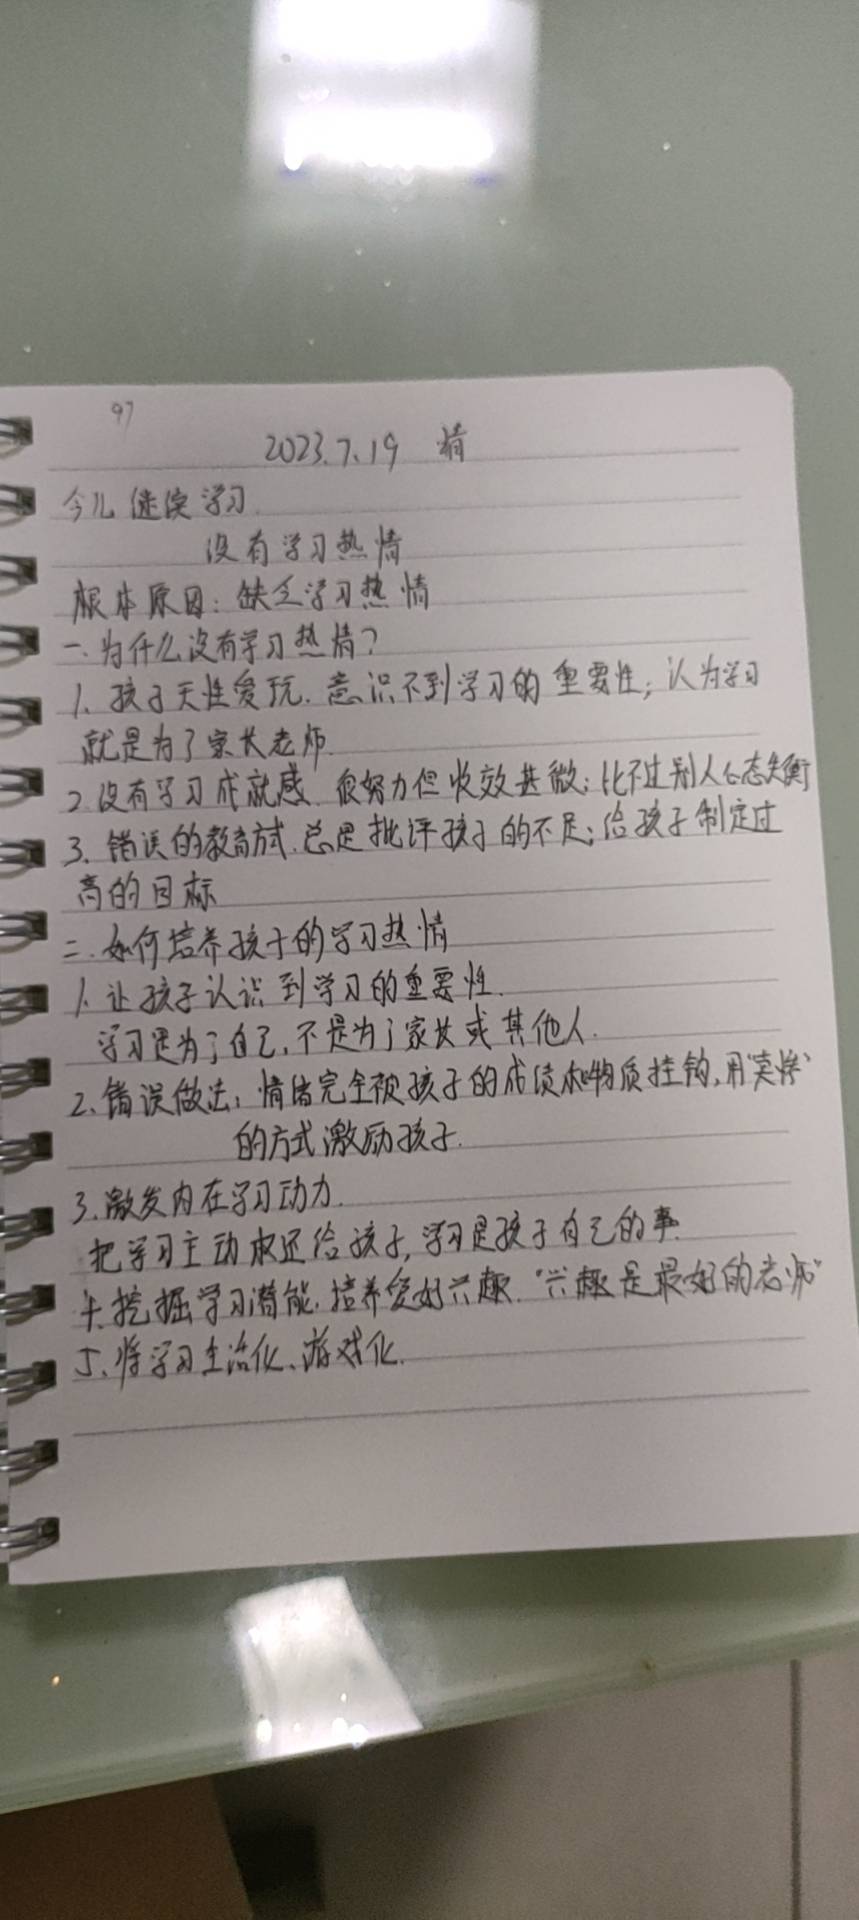 97
2023.7.19 晴
今儿继续学习.
没有学习热情
根本原因：缺乏学习热情
一.为什么没有学习热情？
1.孩子天性爱玩.意识不到学习的重要性；认为学习
就是为了家长老师.
2.没有学习成就感.很努力但收效甚微；比不过别人心态失衡
3.错误的教育方式.总是批评孩子的不足；给孩子制定过
高的目标
二.如何培养孩子的学习热情
1.让孩子认识到学习的重要性.
学习是为了自己,不是为了家长或其他人.
2.错误做法：情绪完全被孩子的成绩和物质挂钩,用“卖惨”
的方式激励孩子.
3.激发内在学习动力.
把学习主动权还给孩子,学习是孩子自己的事.
4.挖掘学习潜能.培养爱好兴趣.“兴趣是最好的老师”
5.将学习生活化、游戏化.